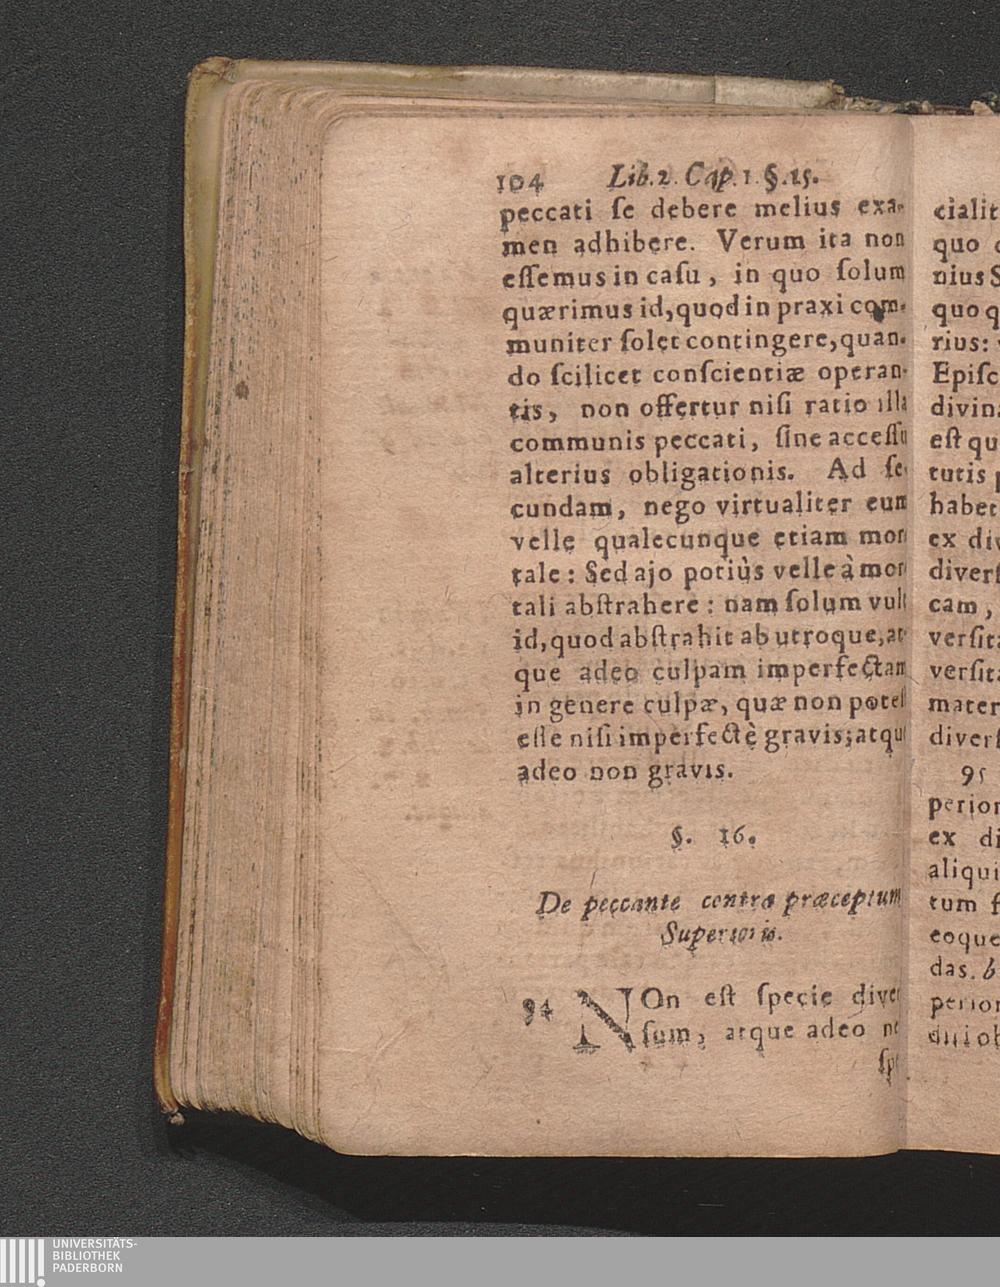 104 Lib. 2. Cap. 1. §. 15.
peccati ſe debere melius exa-
men adhibere. Verum ita non
eſſemus in caſu, in quo ſolum
quærimus id, quod in praxi com-
muniter ſolet contingere, quan-
do ſcilicet conſcientiæ operan-
tis, non offertur niſi ratio illa
communis peccati, ſine acceſſu
alterius obligationis. Ad ſe-
cundam, nego virtualiter eum
velle qualecunque etiam mor
tale: Sed ajo potiùs velle à mor
tali abſtrahere: nam ſolum vult
id, quod abſtrahit ab utroque, at
que adeo culpam imperfectam
in genere culpæ, quæ non poteſt
eſſe niſi imperfectè gravis; atqu
adeo non gravis.
§. 16.
De peccante contra præceptum
Superioris.
94 NOn eſt ſpecie diver
ſum, atque adeo ne
ſpe
cialit
quo
nius S
quo q
rius:
Epiſc
divina
eſt qu
tutis
habet
ex div
diverſ
cam,
verſita
verſita
mater
diverſ
95
perior
ex di
aliqui
tum f
eoque
das. b
perior
UNIVERSITÄTS-
BIBLIOTHEK
PADERBORN